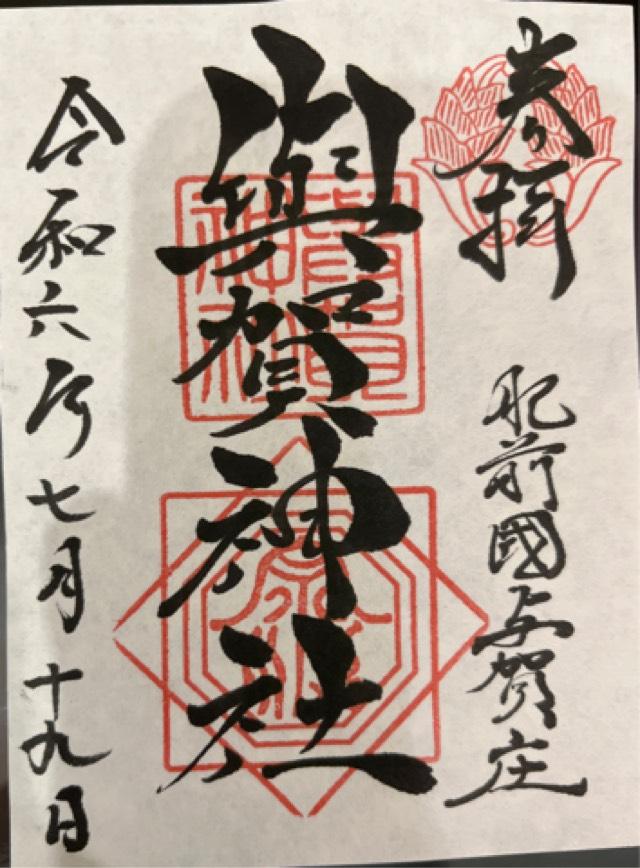 奉拝
肥前國与賀庄
與賀神社
令和六年七月十九日